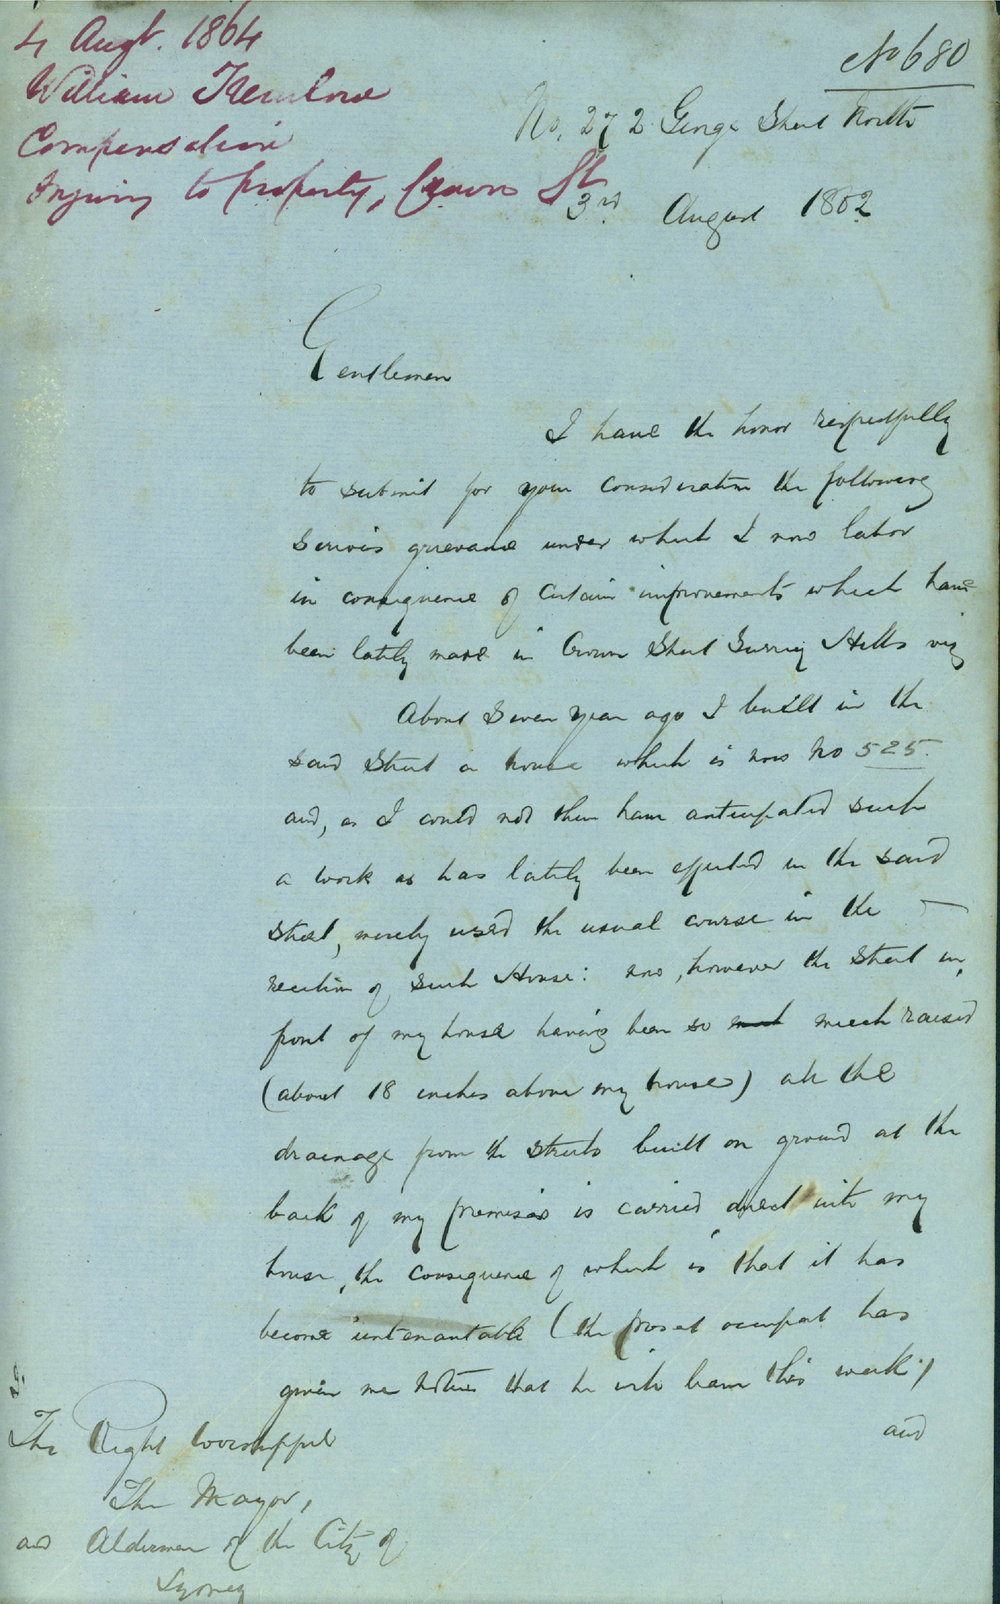 4 Augt. 1864
William
Compensation
Injury to property, Crown St
No 680
No. 272 George Street North
3rd August 1862
Gentlemen
I have the honor respectfully
to submit for your consideration the following
serious grievance under which I now labor
in consequence of certain improvements which have
been lately made in Crown Street Surrey Hills viz
About seven year ago I built in the
said Street a house which is now No 525.
and, as I could not then have anticipated such
a work as has lately been effected in the said
Street, merely used the usual course in the
erection of such House: now, however the Street in
front of my house having been so much raised
(about 18 inches above my house) all the
drainage from the streets built on ground at the
back of my premises is carried direct into my
house, the consequence of which is that it has
become untenantable (the present occupant has
given me notice that he will leave this week)
and
The Right Worshipful
The Mayor,
and Aldermen of the City of
Sydney